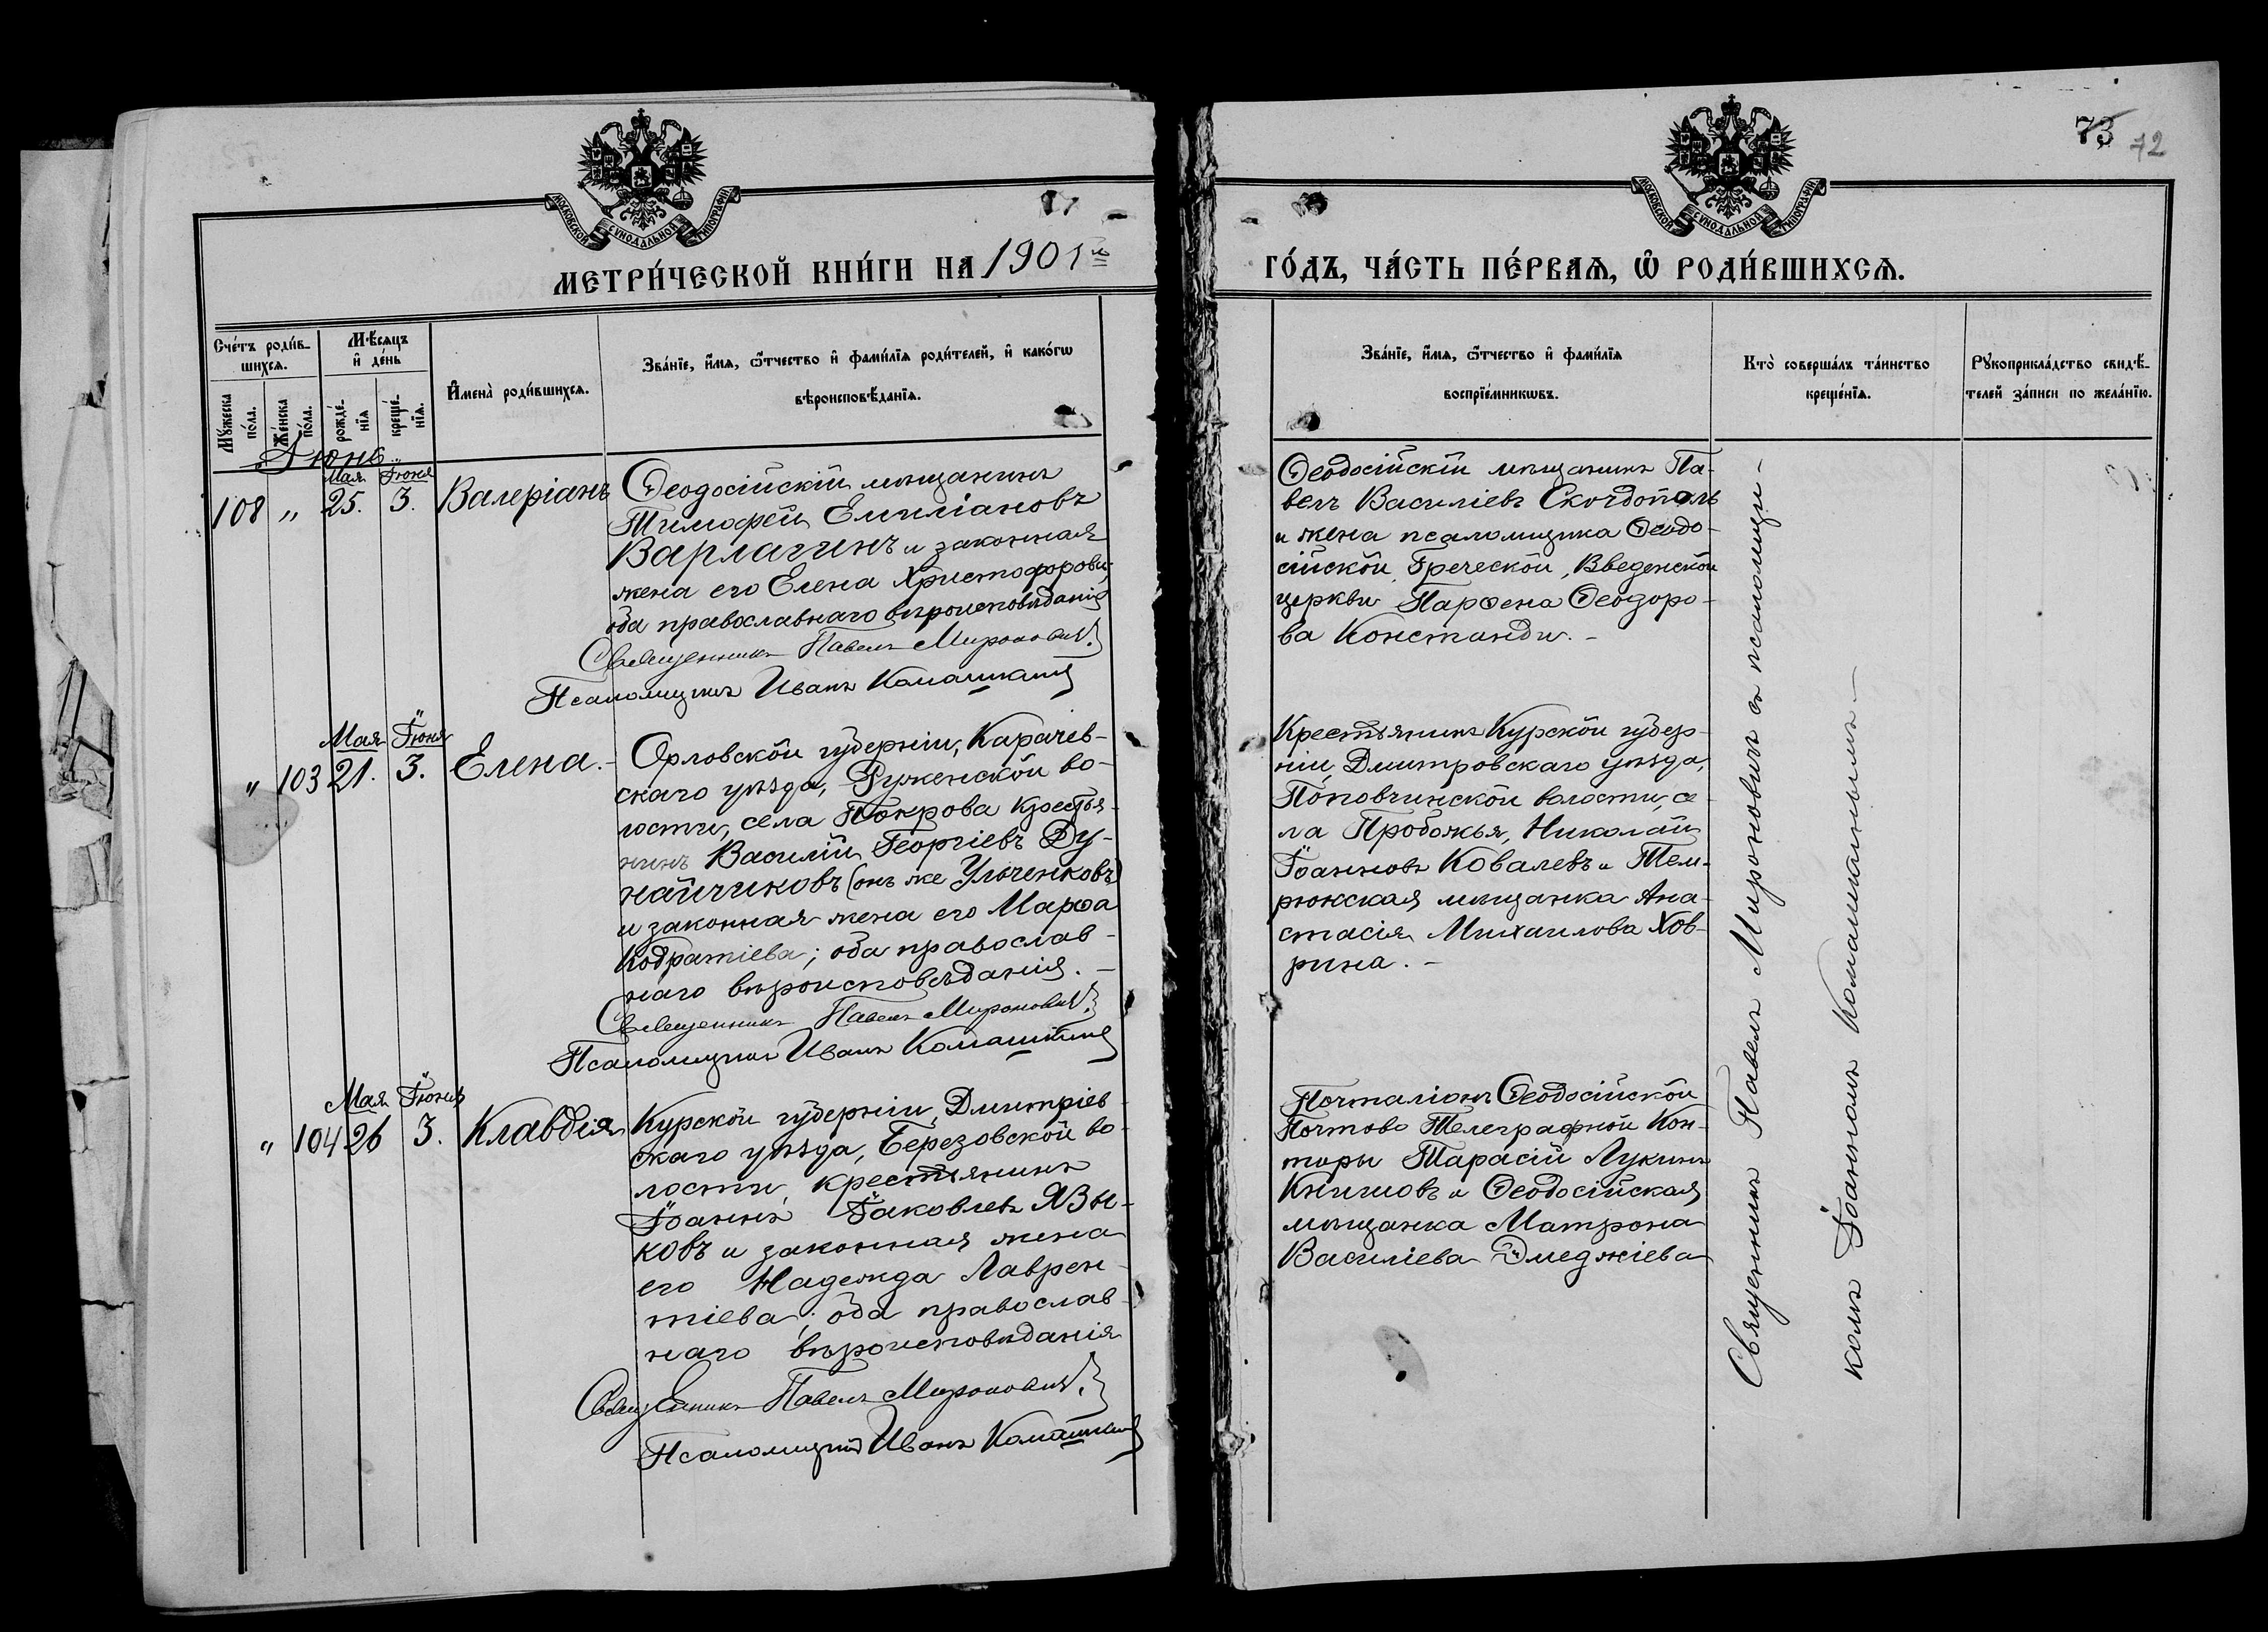 73 72
МОСКОВСКОЙ СѴНОДАЛЬНОЙ ТИПОГРАФІИ
МОСКОВСКОЙ СѴНОДАЛЬНОЙ ТИПОГРАФІИ
МЕТРИ́ЧЕСКОЙ КНИ́ГИ НА 1901й
ГО́ДЪ, ЧА́СТЬ ПЕ́РВАЯ, Ѡ҆ РОДИ́ВШИХСЯ.
Сче́тъ роди́в-
шихся.
Мꙋ́жеска
по́ла.
Же́нска
по́ла.
Мѣ́сяцъ
и҆ де́нь
рожде́-
нїя
креще́-
нїя.
И҆мена̀ роди́вшихся.
Зва́нїе, и҆́мя, ѻ҆́тчество и҆ фами́лїя роди́телей, и҆ како́гѡ
вѣроисповѣ́данїя.
Зва́нїе, и҆́мя, ѻ҆́тчество и҆ фами́лїя
воспрїе́мникѡвъ.
Кто̀ соверша́лъ та́инство
креще́нїя.
Рꙋкоприкла́дство свидѣ́-
телей за́писи по жела́нїю.
Іюнь
Мая Іюня
108 „ 25. 3. Валеріанъ
Ѳеодосійскій мѣщанинъ
Тимофей Емиліановъ
Варлагинъ и законная
жена его Елена Христофорова;
оба православнаго вѣроисповѣданія
Священникъ Павелъ Мироновичъ.
Псаломщикъ Иванъ Комашканъ
Ѳеодосійскій мѣщанинъ Па-
велъ Василіевъ Скочдополь
и жена псаломщика Ѳеодо-
сійской Греческой, Введенской
церкви Парѳена Ѳеодоро-
ва Констанди. -
Мая Іюня
„ 103 21. 3. Елена. -
Орловской губерніи, Карачев-
скаго уѣзда, Руженской во-
лости, села Покрова крестья-
нинъ Василій Георгіевъ Ду-
найчиковъ (онъ же Ульченковъ)
и законная жена его Марѳа
Кодратіева; оба православ-
наго вѣроисповѣданія. -
Священникъ Павелъ Мироновичъ.
Псаломщикъ Иванъ Комашканъ
Крестьянинъ Курской губер-
ніи, Дмитровскаго уѣзда,
Поповчинской волости, се-
ла Пробожья, Николай
Іоанновъ Ковалевъ и Тем-
рюкская мѣщанка Ана-
стасія Михаилова Хов-
рина. -
Мая Іюня
„ 104 26 3. Клавдія
Курской губерніи, Дмитріев-
скаго уѣзда, Березовской во-
лости, крестьянинъ
Іоаннъ Іаковлевъ Язы-
ковъ и законная жена
его Надежда Лаврен-
тіева; оба православ-
наго вѣроисповѣданія
Священникъ Павелъ Мироновичъ.
Псаломщикъ Иванъ Комашканъ
Почталіонъ Ѳеодосійской
Почтово Телеграфной Кон-
торы Тарасій Лукинъ
Книшовъ и Ѳеодосійская
мѣщанка Матрона
Василіева Эмеджіева
Священникъ Павелъ Мироновичъ съ псаломщи-
комъ Іоанномъ Комашканымъ -